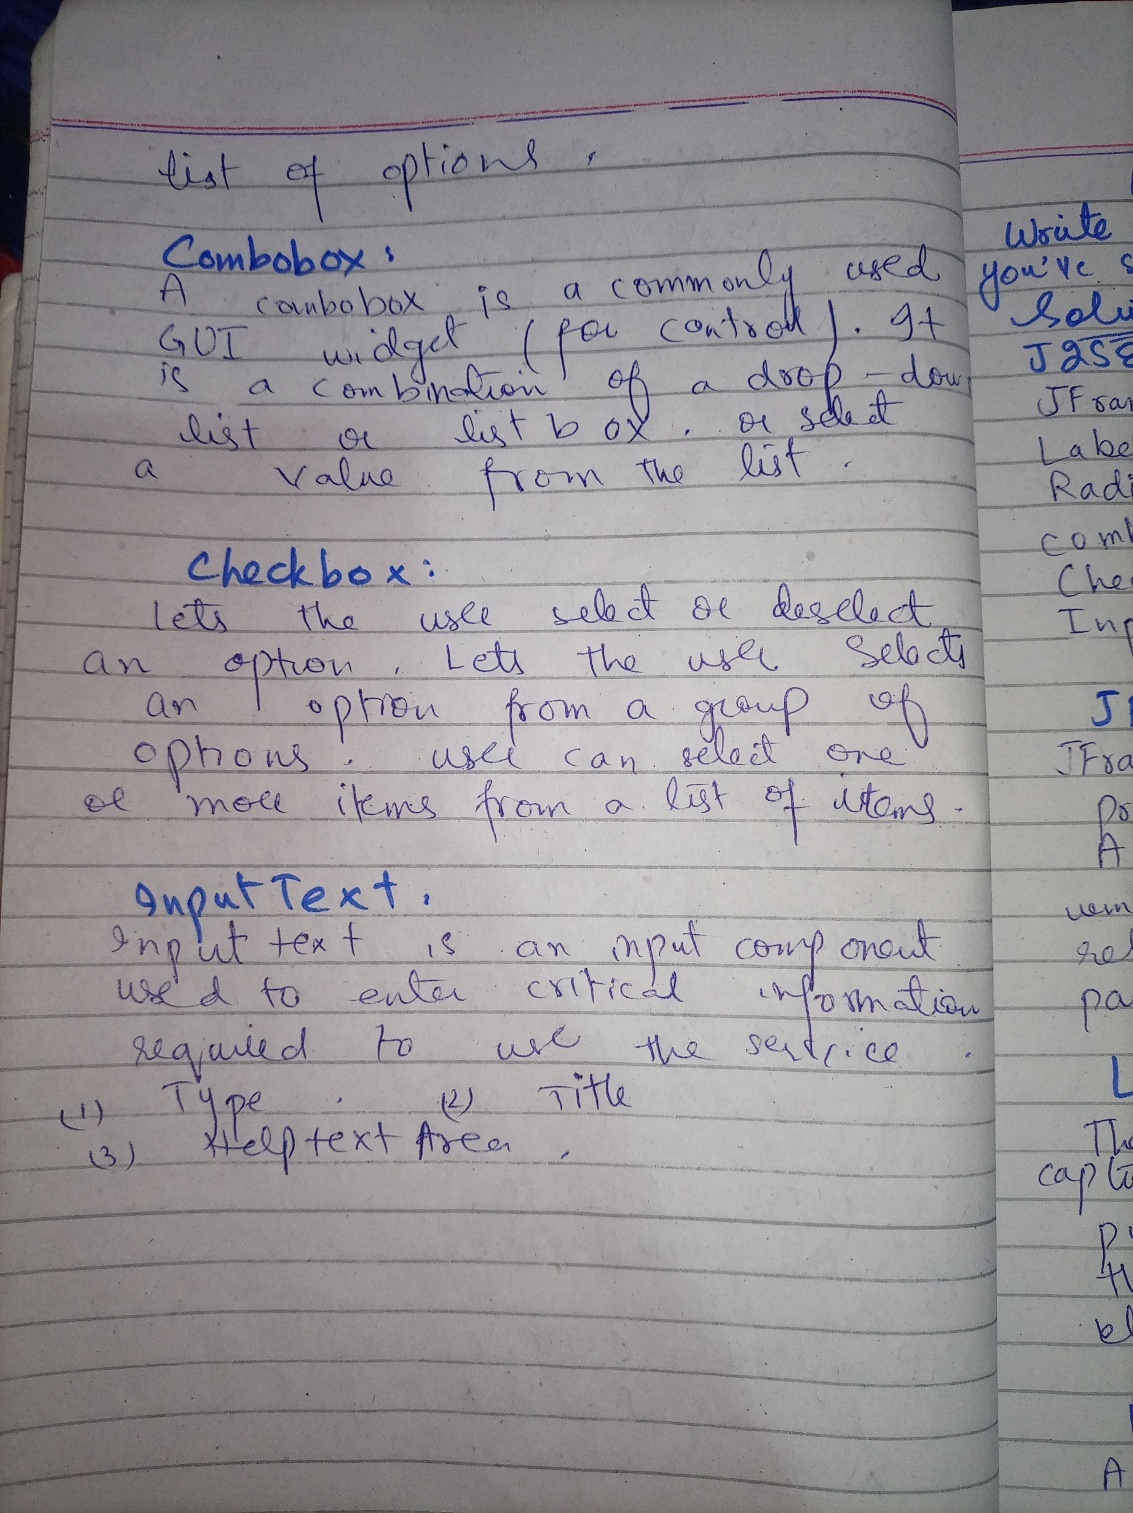 list of options.
Combobox:
A combobox is a commonly used
GUI widget (for control). It
is a combination of a drop-down
list or list box. or select
a value from the list.
Checkbox:
Lets the user select or deselect
an option. Lets the user selects
an option from a group of
options. user can select one
or more items from a list of items.
Input Text.
Input text is an input component
used to enter critical information
required to use the service.
(1) Type. (2) Title
(3) Helptext Area.
Write
you've s
Solu
J2SE
JFram
Labe
Radi
comb
Che
Inp
JF
JFra
po
A
rem
rel
pa
L
The
capti
A